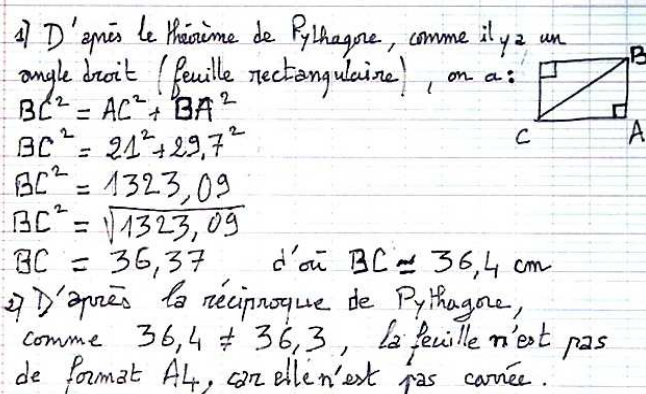 1) D'après le théorème de Pythagore, comme il y a un
angle droit (feuille rectangulaire), on a :
BC² = AC² + BA²
BC² = 21² + 29,7²
BC² = 1323,09
BC² = √1323,09
BC = 36,37 d'où BC ≃ 36,4 cm
B
C
A
2) D'après la réciproque de Pythagore,
comme 36,4 ≠ 36,3, la feuille n'est pas
de format A4, car elle n'est pas carrée.